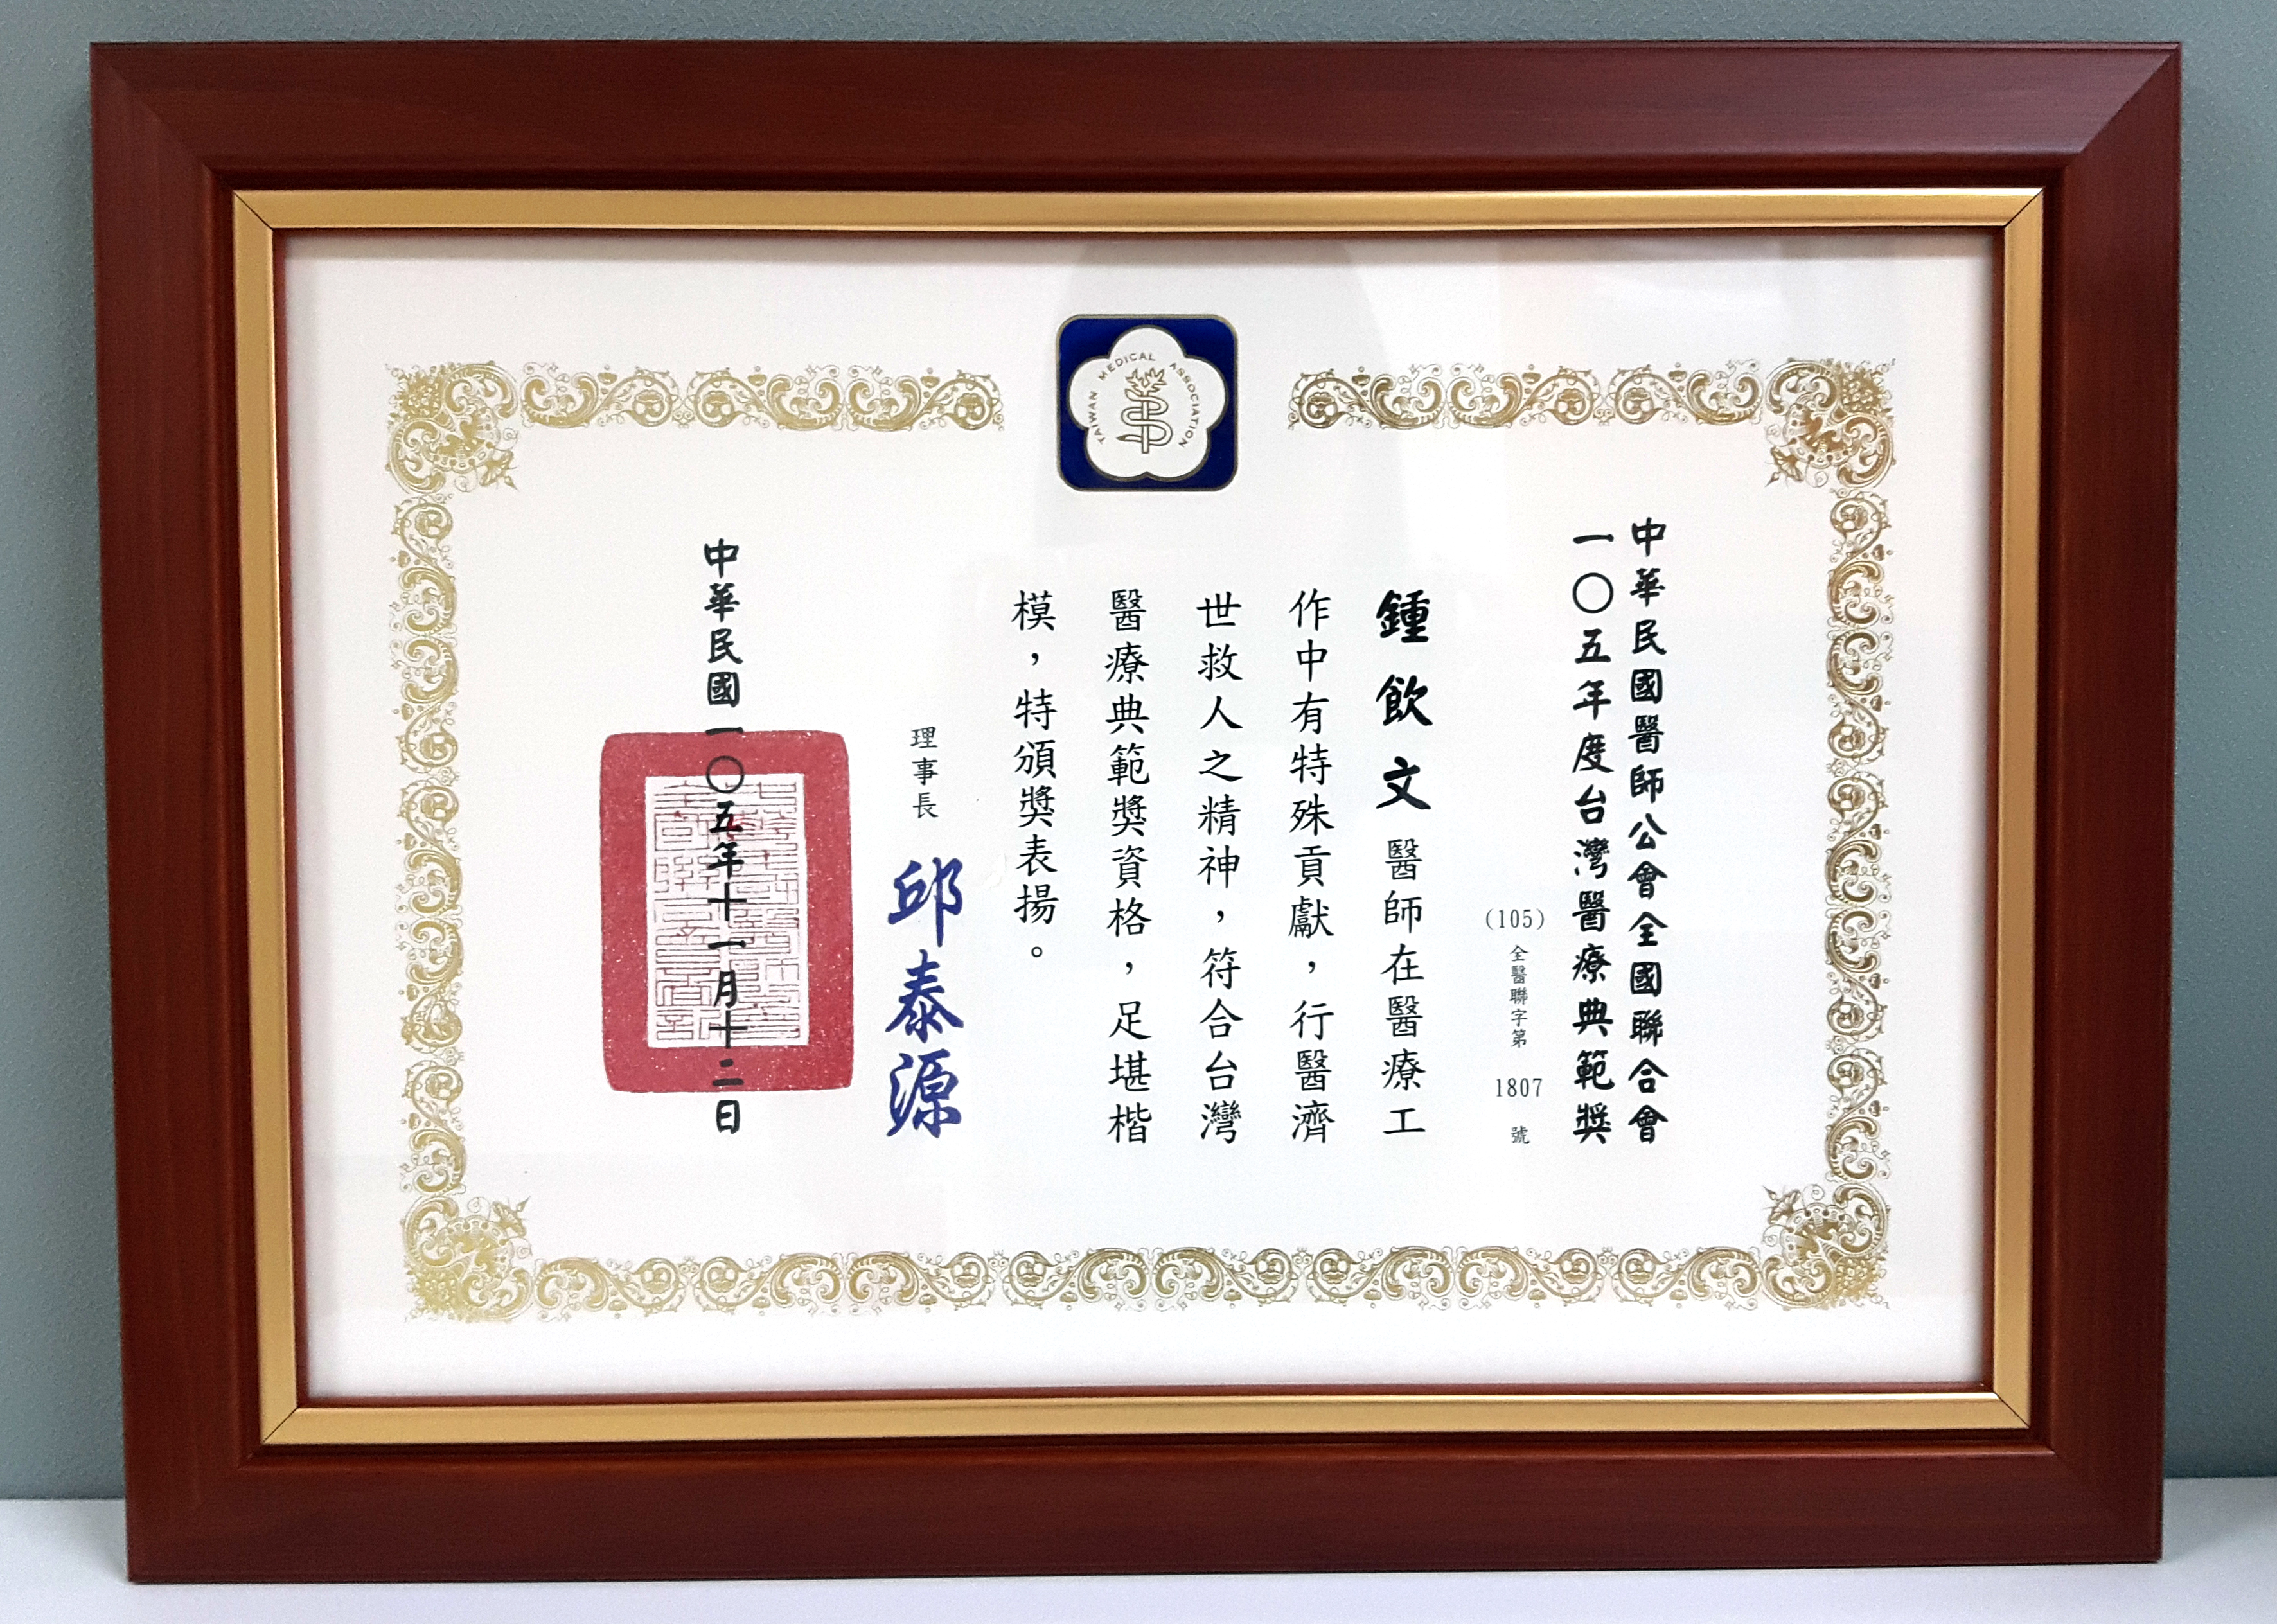 TAIWAN MEDICAL ASSOCIATION
中華民國醫師公會全國聯合會
一〇五年度台灣醫療典範獎
(105)全醫聯字第 1807 號
鍾飲文醫師在醫療工
作中有特殊貢獻，行醫濟
世救人之精神，符合台灣
醫療典範獎資格，足堪楷
模，特頒獎表揚。
理事長 邱泰源
中華民國一〇五年十一月十二日